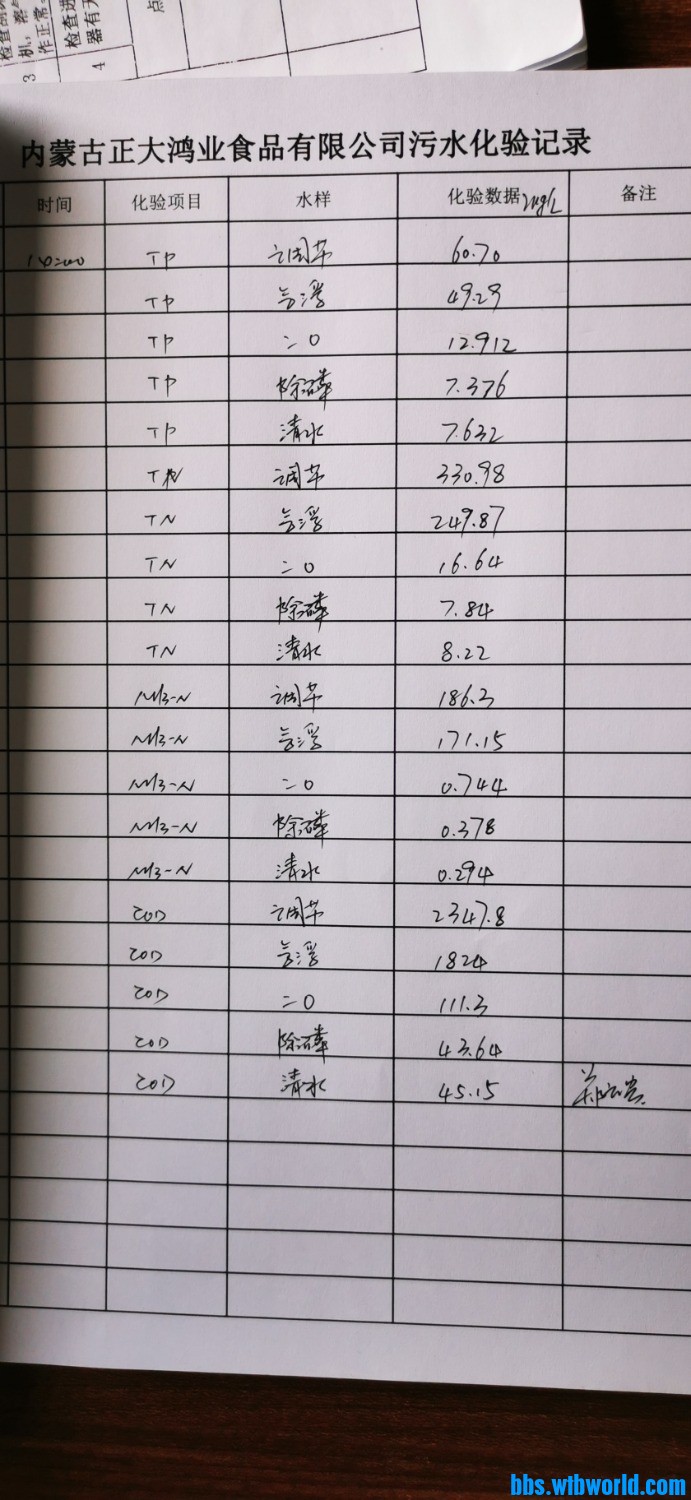 点
检查进
器有天
4
机，蒸气
作正常
3
内蒙古正大鸿业食品有限公司污水化验记录
时间 化验项目 水样 化验数据mg/L 备注
TP 调节 60.70
TP 气浮 49.29
TP 二O 12.912
TP 除磷 7.376
TP 清水 7.632
TN 调节 330.98
TN 气浮 249.87
TN 二O 16.64
TN 除磷 7.84
TN 清水 8.22
NH3-N 调节 186.3
NH3-N 气浮 171.15
NH3-N 二O 0.744
NH3-N 除磷 0.378
NH3-N 清水 0.294
COD 调节 2347.8
COD 气浮 1824
COD 二O 111.3
COD 除磷 43.64
COD 清水 45.15
bbs.wtbworld.com